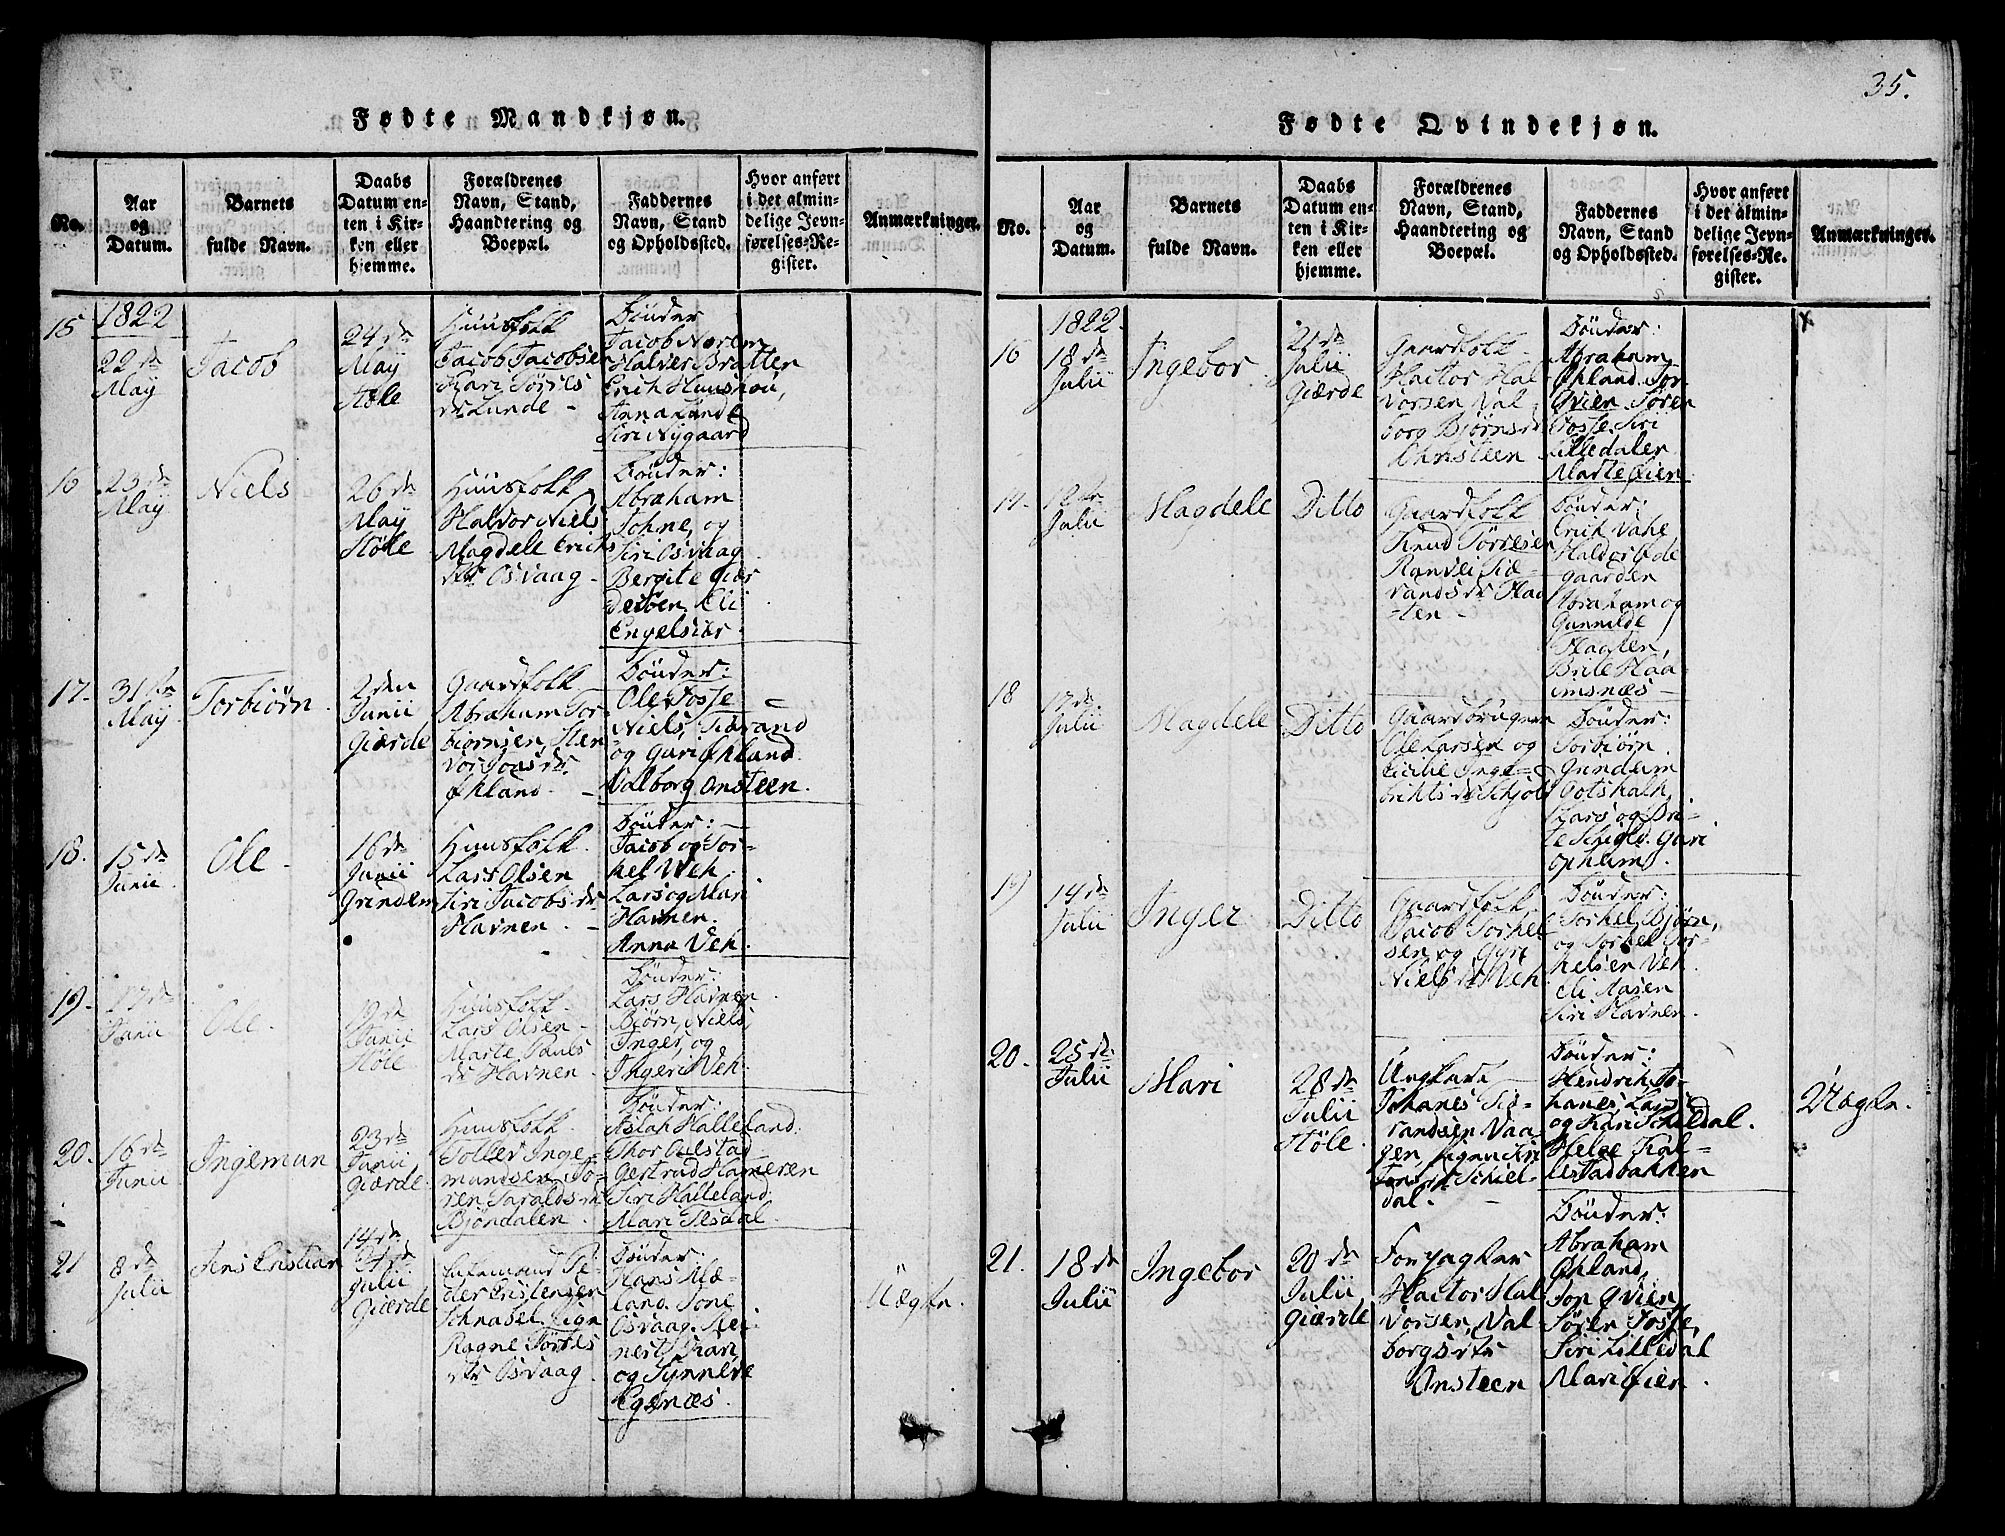 35.
Fødte Mandkjøn.
No.
Aar
og
Datum.
Barnets
fulde Navn.
Daabs
Datum en-
ten i Kir-
ken eller
hjemme.
Forældrenes
Navn, Stand,
Haandtering og
Boepæl.
Faddernes
Navn, Stand
og Opholdssted.
Hvor anført
i det almin-
delige Jevn-
førelses-Re-
gister.
Anmærkninger.
15
1822
22de
May
Jacob
24de
May
Støle
Huusfolk
Jacob Jacobsen
Kari Törres
dr Lunde -
Bönder
Jacob Norem
Halver Bratten
Erich Huushou,
Anna Lunde
Siri Nygaard
16
23de
May
Niels
26de
May
Støle
Huusfolk
Haldor Niels
Magdele Erichs
dtr Osvaag -
Bönder:
Abraham
Tohne, og
Siri Osvaag
Bergite Giær
Desöen, Eli
Engelsiær.
17.
31te
May
Torbiörn.
2den
Junii
Giærde
Gaardfolk
Abraham Tor-
biörnsen, Sten
vor Joasdr.
Öhland. -
Bönder:
Ole Fosse
Niels, Siærand
og Guri Öhland.
Valborg Onsteen.
18.
15de
Junii.
Ole.
16de
Junii
Grindem
Huusfolk.
Lars Olsen
Siri Jacobsdr
Havnen. -
Bönder: -
Jacob og Tor-
kel Veh
Lars og Mari
Havnen.
Anna Veh.
19.
17de
Junii
Ole.
19de
Junii
Støle
Huusfolk
Lars Olsen -
Marte Pauls
dr Havnen -
Bönder:
Lars Havnen
Biörn, Niels,
Inger, og
Ingeri Veh.
20.
16de
Junii
Ingemun
23de
Junii
Giærde.
Huusfolk.
Tollev Inge-
mundsen, To-
ren Taraldsdr
Bjöndalen.
Bönder:
Aslak Halleland.
Thor Culstad
Gertrud Hameren
Siri Halleland,
Mari Tesdal.
21
8de
Julii
Jens Cristian
14de
Julii
Giærde
Peder Cristensen
Schnabel, Pigen
Ragne Törres
dtr Osvaag.
Bönder:
Hans Mæ-
land. Tone
Osvaag. Rei-
nert, Kari,
og Synneve
Egenæs.
Uægte.
Fødte Qvindekjøn.
No.
Aar
og
Datum.
Barnets
fulde Navn.
Daabs
Datum en-
ten i Kir-
ken eller
hjemme.
Forældrenes
Navn, Stand,
Haandtering og
Boepæl.
Faddernes
Navn, Stand
og Opholdssted.
Hvor anført
i det almin-
delige Jevn-
førelses-Re-
gister.
Anmærkninger.
16
1822.
18de
Julii
Ingebor
21de
Julii
Giærde
Gaardfolk
Hactor Hal-
vorsen, Val
borg Björnsdr
Onsteen
Bönder:
Abraham
Öhland. Tor.
Qvien, Sören
Fosse. Siri
Lilledalen
Marte Öien.
x
17.
Julii
Magdele
Ditto
Gaardfolk
Knud Törresen
Ranvei Siæ-
randsdr Haa
-ten -
Bönder:
Erich Vahe
Haldor Öde
gaarden
Abraham og
Gunnilde
Haaten,
Brite Haa-
imsnæs -
18
17de
Julii
Magdele
Ditto
Gaardbrugern
Ole Larsen og
Cicilie Inge-
brichtsdr Schjold
Bönder:
Torbiörn
Grindem
Gotskalk,
Lars og Bri-
te Schiold. Guri
Opheim.
19
14de
Julii
Inger
Ditto
Gaardfolk,
Jacob Torkel
sen og Guri
Nielsdr Veh
Bönder:
Torkel, Björn,
og Torkel Tor-
kelsen Veh.
Eli Aasen
Siri Havnen.
20.
25de
Julii
Mari
28de
Julii
Støle.
Ungkarl
Johanes Siæ-
randsen Vaa-
gen, Pigen Kri
dr Schiel-
dal.
Bönder:
Hendrik, Jo-
hanes, Lars
og Kari Schieldal.
Helge Kal-
lestadbakken
Uægte.
21.
18de
Julii
Ingebor
20de
Julii
Giærde
Forpagter
Hactor Hal
vorsen, Val
borgs dtr
Onsteen
Bönder:
Abraham
Öhland,
Jon Qvien,
Sören Fosse,
Siri Lilledal
Mari Öien.